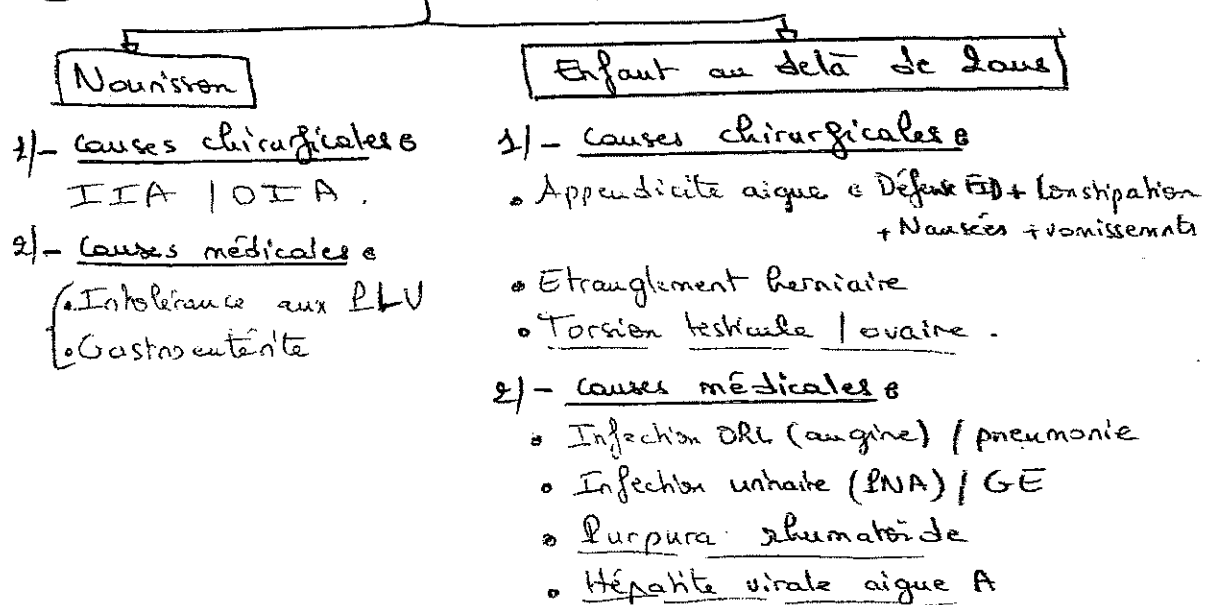 Nourisson
1/- Causes chirurgicales :
IIA / OIA .
2/- Causes médicales :
• Intolérance aux PLV
• Gastroentérite
Enfant au delà de 2ans
1/- Causes chirurgicales :
• Appendicite aigue : Défense FID + Constipation
+ Nausées + vomissements
• Etranglement herniaire
• Torsion testicule / ovaire .
2/- Causes médicales :
• Infection ORL (angine) / pneumonie
• Infection urinaire (PNA) / GE
• Purpura rhumatoïde
• Hépatite virale aigue A